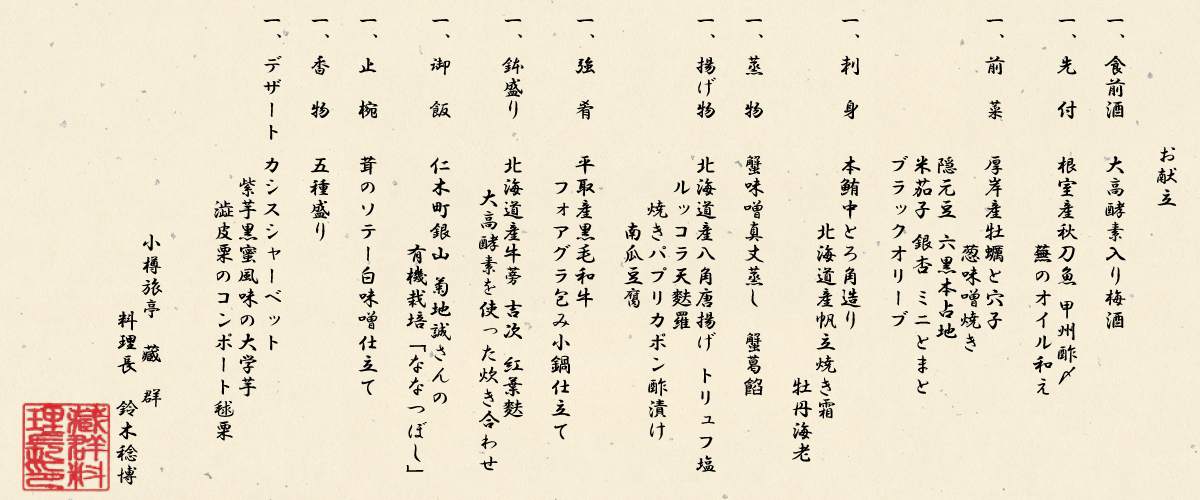 お献立
一、食前酒 大高酵素入り梅酒
一、先付 根室産秋刀魚 甲州酢〆
蕪のオイル和え
一、前菜 厚岸産牡蠣と穴子
葱味噌焼き
隠元豆 六黒本占地
米茄子 銀杏 ミニとまと
ブラックオリーブ
一、刺身 本鮪中とろ角造り
北海道産帆立焼き霜
牡丹海老
一、蒸物 蟹味噌真丈蒸し 蟹葛餡
一、揚げ物 北海道産八角唐揚げ トリュフ塩
ルッコラ天麩羅
焼きパプリカポン酢漬け
南瓜豆腐
一、強肴 平取産黒毛和牛
フォアグラ包み小鍋仕立て
一、鉢盛り 北海道産牛蒡 吉次 紅葉麩
大高酵素を使った炊き合わせ
一、御飯 仁木町銀山 菊地誠さんの
有機栽培「ななつぼし」
一、止椀 茸のソテー白味噌仕立て
一、香物 五種盛り
一、デザート カシスシャーベット
紫芋黒蜜風味の大学芋
澁皮栗のコンポート毬栗
小樽旅亭 藏群
料理長 鈴木稔博
藏群料
理長印